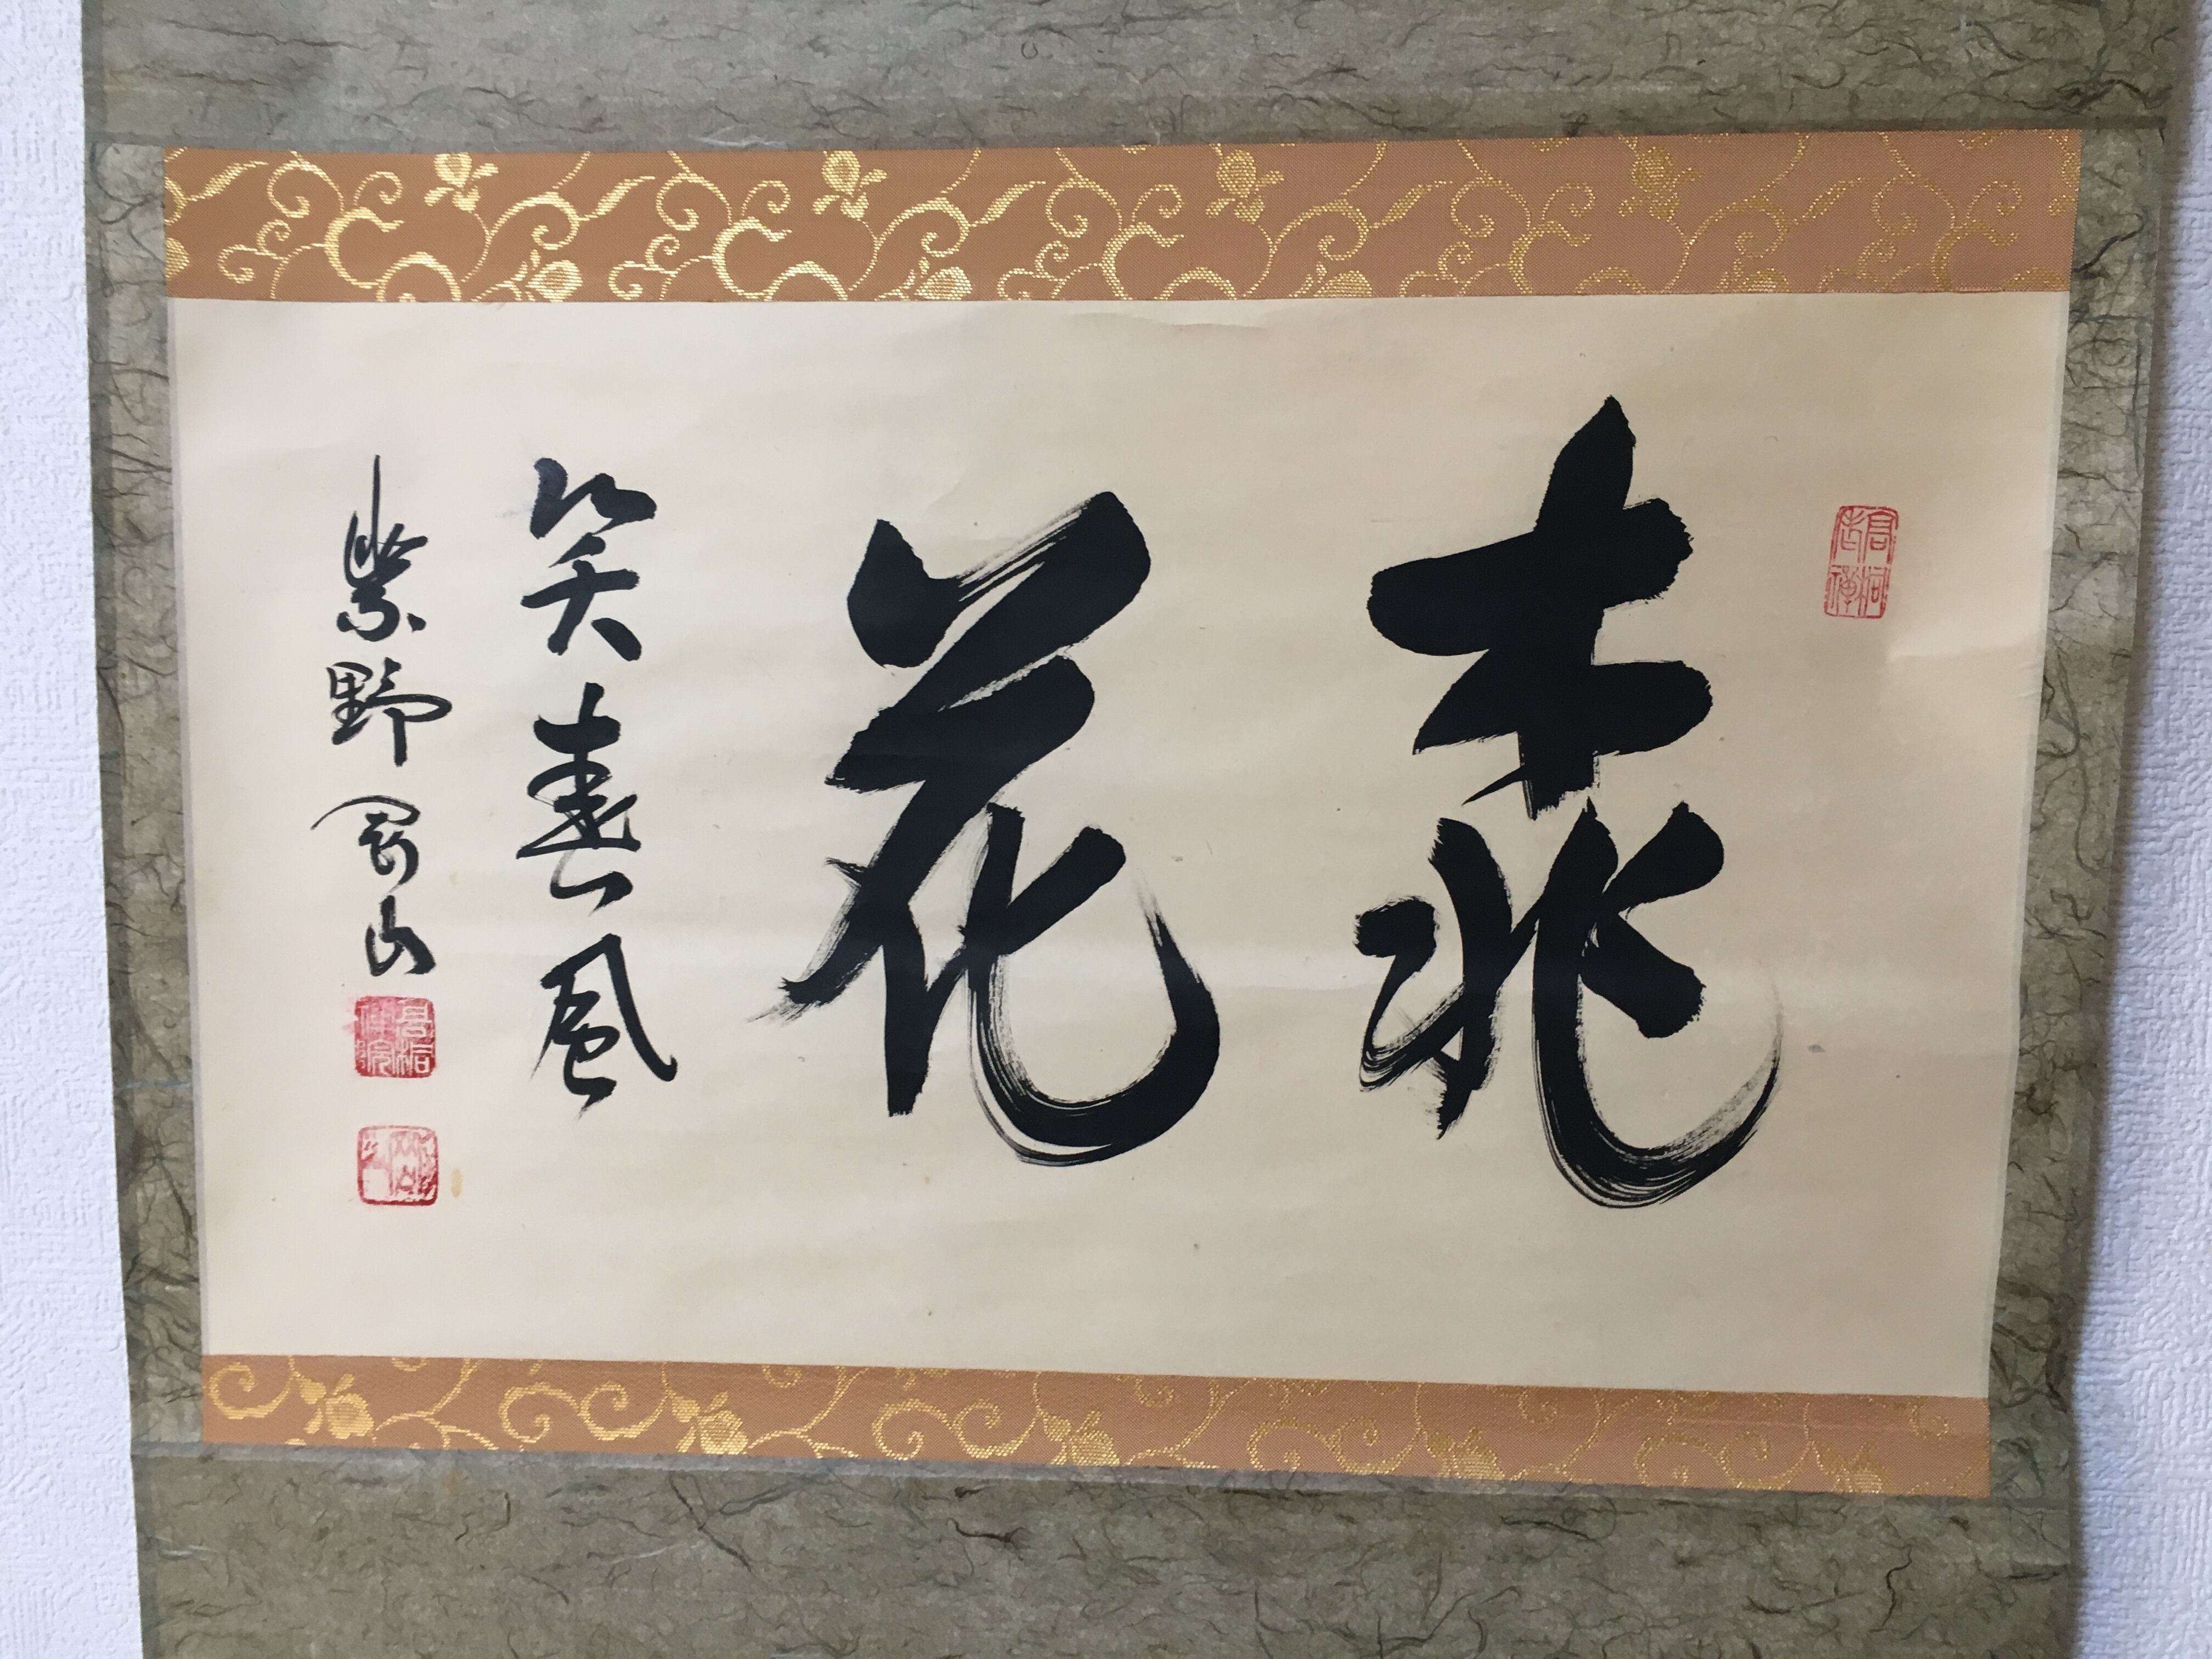 桃
花
笑春風
紫野 剛山